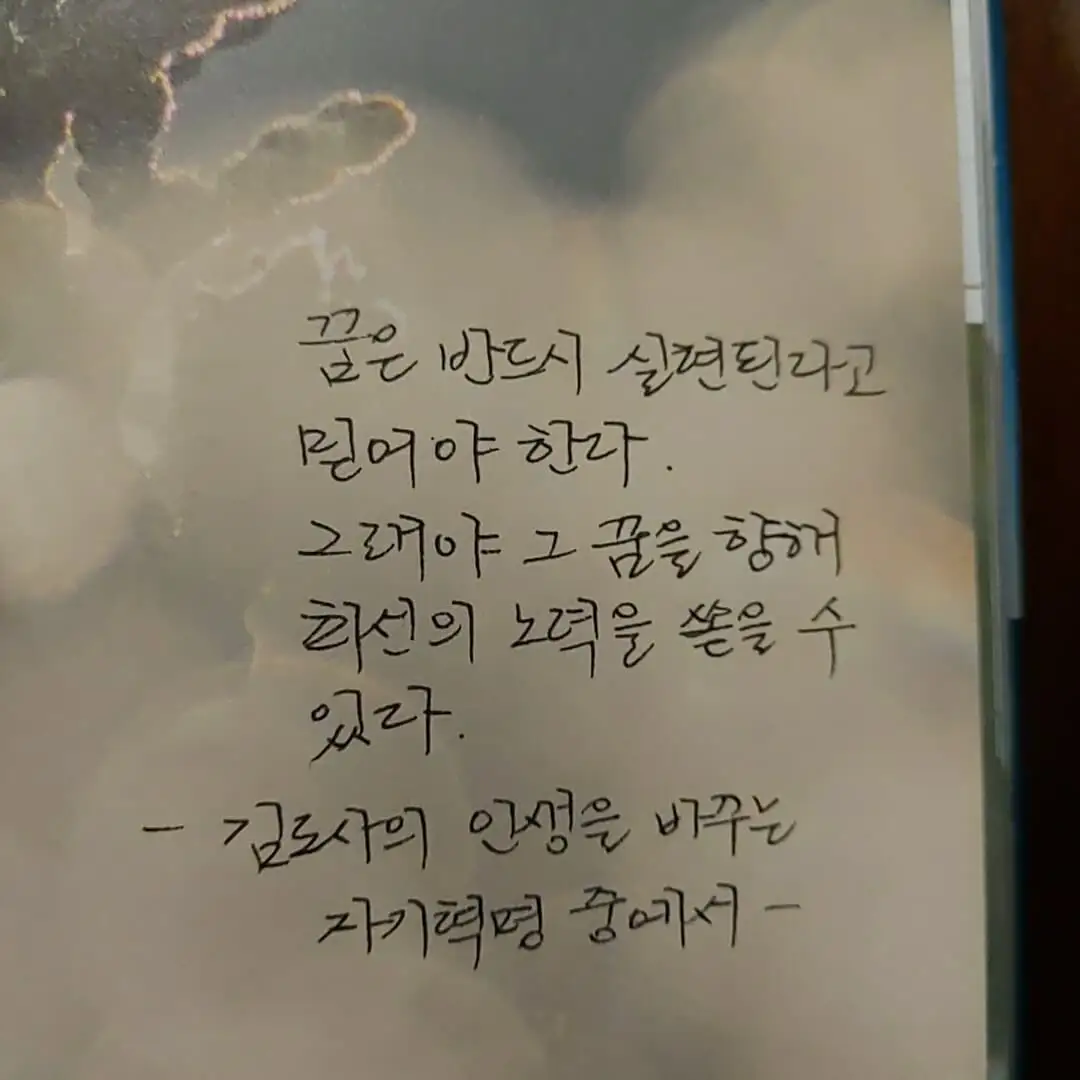 꿈은 반드시 실현된다고
믿어야 한다.
그래야 그 꿈을 향해
최선의 노력을 쏟을 수
있다.
- 김도사의 인생을 바꾸는
자기혁명 중에서 -